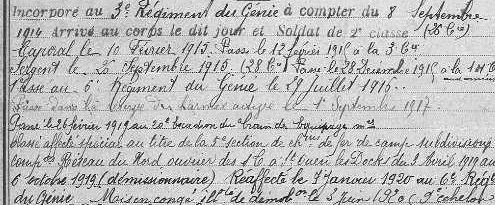 Incorporé au 3e Régiment du Génie à compter du 8 Septembre
1914 Arrivé au corps le dit jour et Soldat de 2e classe (26 Cie)
Caporal le 10 Février 1915. Passé le 12 février 1915 à la 3 Cie
Sergent le 20 Septembre 1915 (28 Cie) Passé le 28 1915 à la
Passé au 6e Régiment du Génie le 29 Juillet 1916.
Passé dans la des armées le 1er Septembre 1917
Passé le 26 février 1919 au 20e Escadron du train des Equipages
Classé affecté spécial au titre de la 5e section de ch. de fer de camp. subdivision
comp. Réseau du Nord ouvrier des à St Ouen les Docks du 2 Avril 1919 au
6 octobre 1919 (démissionnaire) Réaffecté le 7 Janvier 1920 au 6e Rég
du Génie Mis en congé de démob le 3 Juin échelon